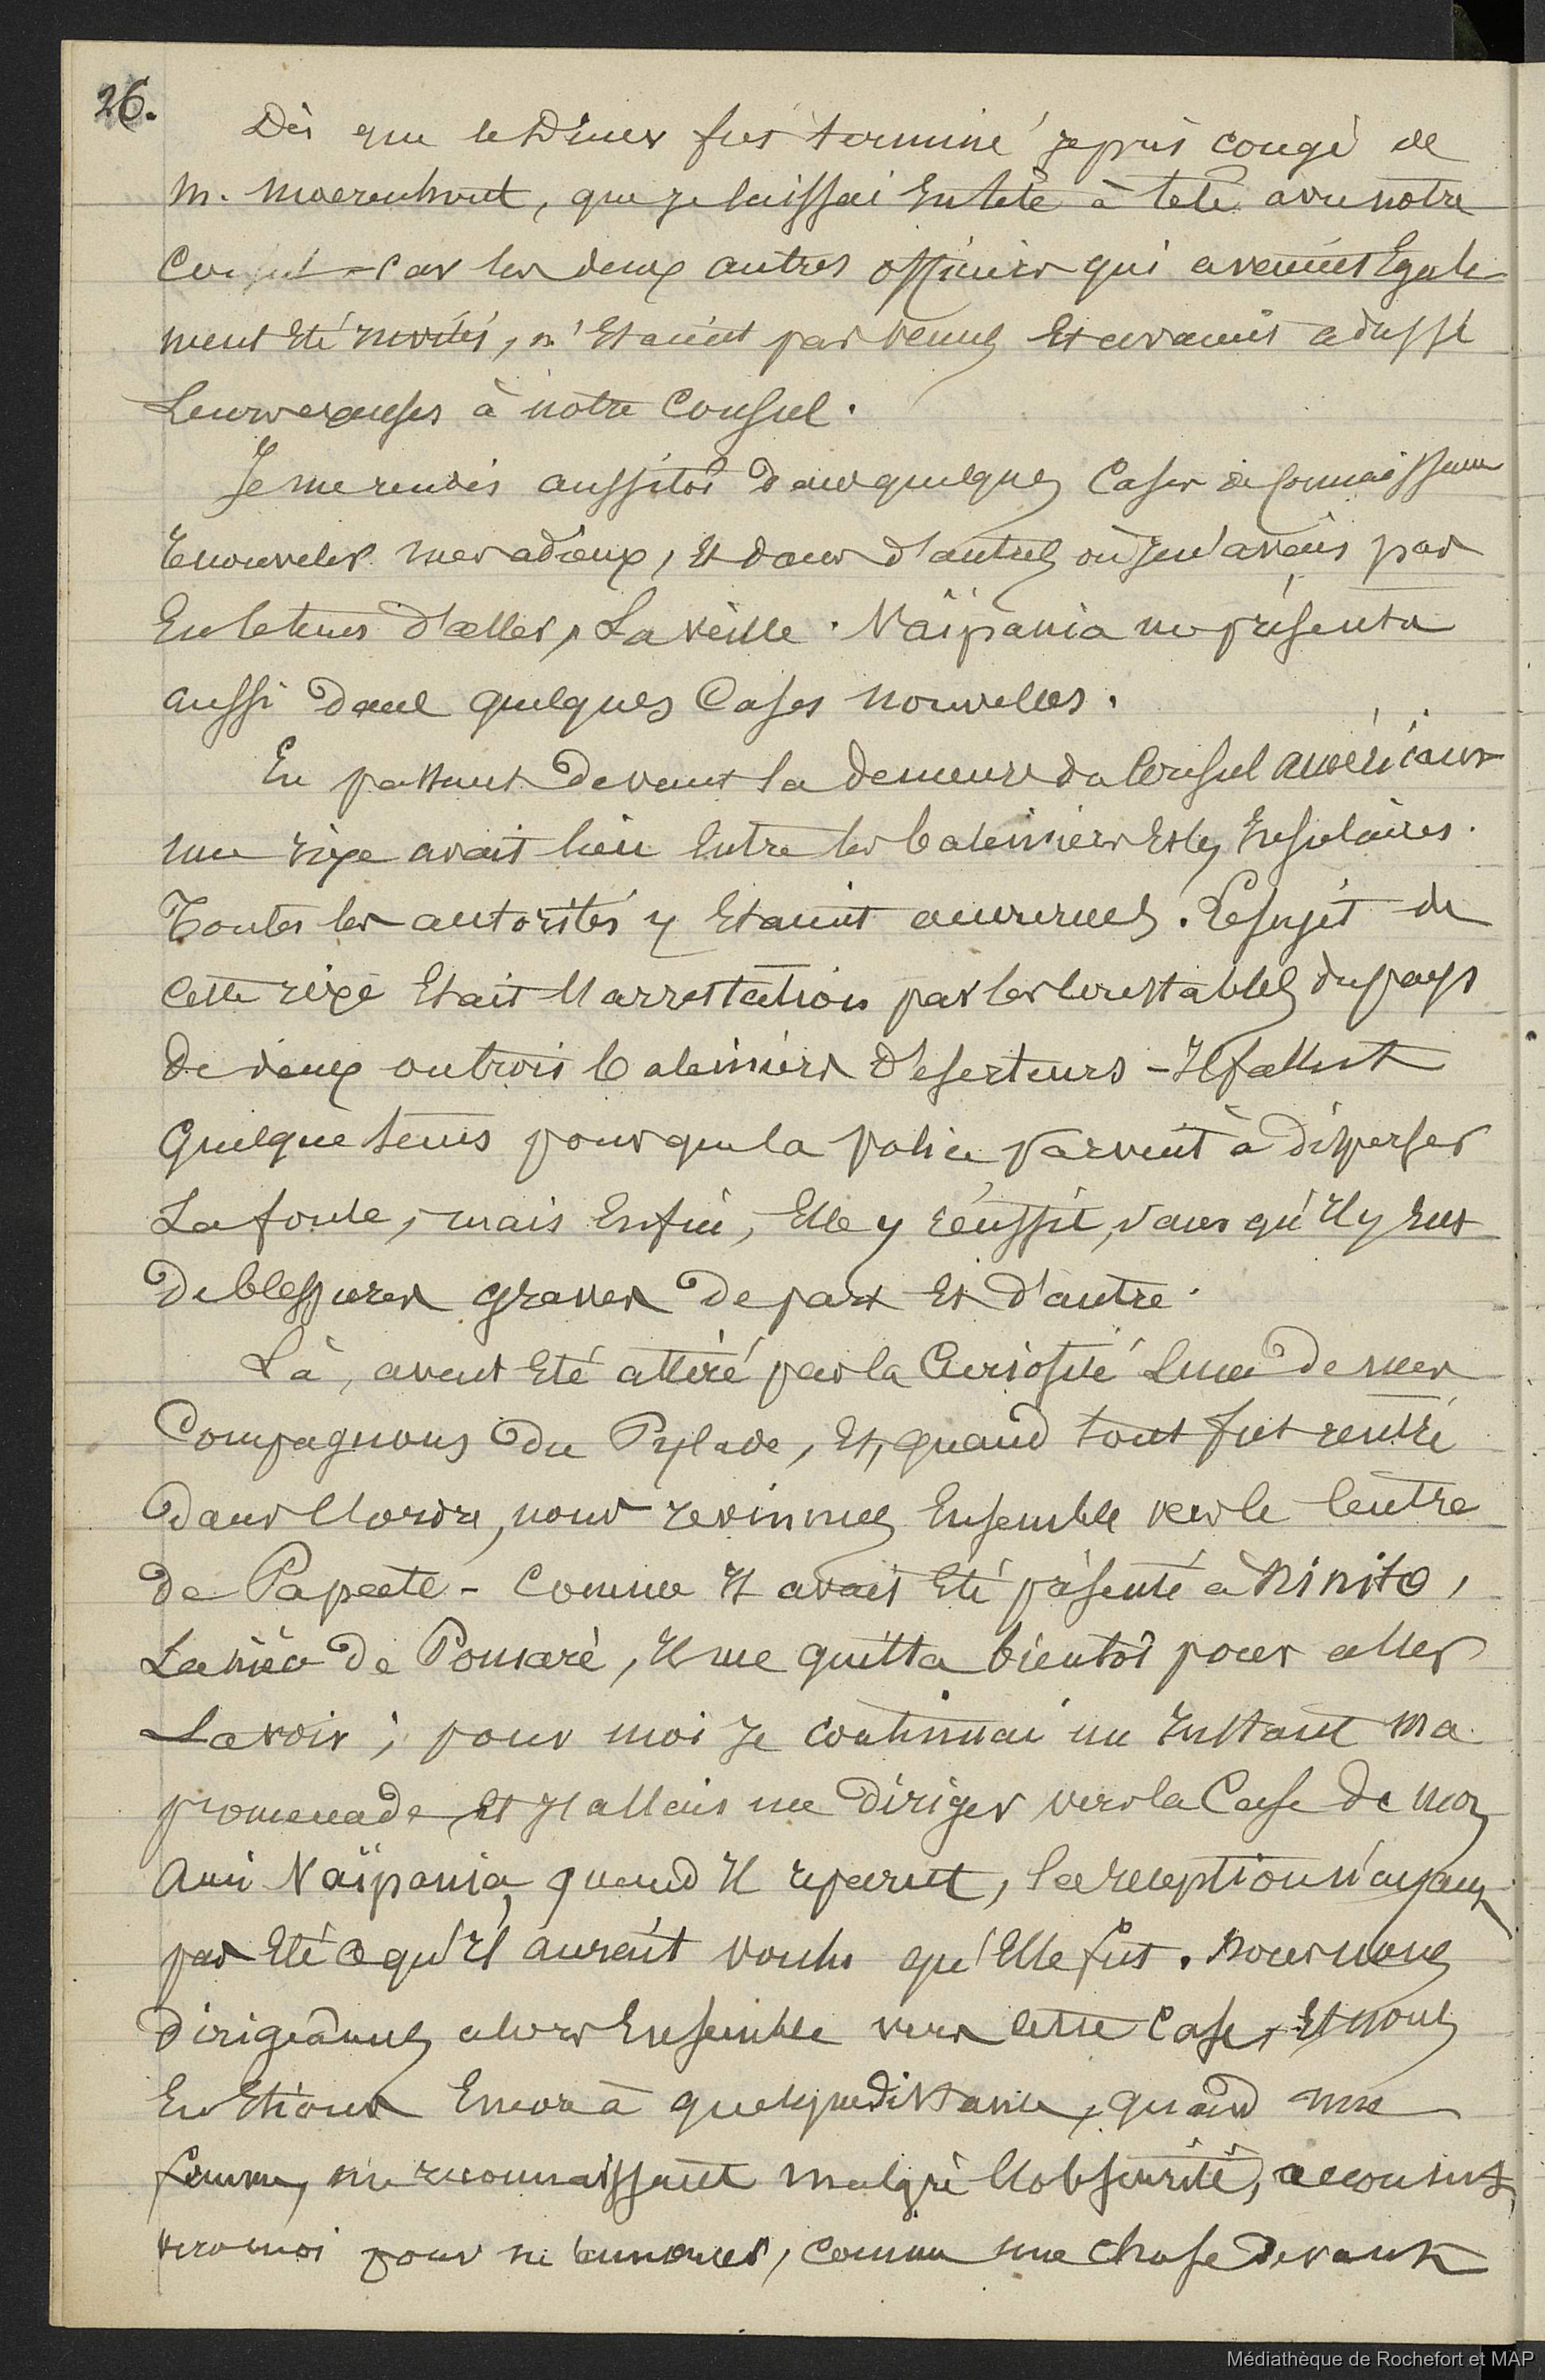 26.
Dès que le Dîner fut terminé je pris congé de
M. Moerenhout, que je laissai En tête à tête avec notre
Consul - car les deux autres officiers qui avaient Egale
ment Eté invités, n'Etaient pas venus Et avaient adressé
Leurs excuses à notre Consul.
Je me rendis aussitôt dans quelques Cases de connaissance
renouveler mes adieux, Et dans d'autres où je n'avais pas
Eu le tems d'aller, La veille. Naïpania me présenta
aussi dans quelques Cases nouvelles.
En passant devant la demeure du Consul américain
une rixe avait lieu Entre les baleiniers Et les Insulaires.
Toutes les autorités y Etaient accourues. Le sujet de
Cette rixe Etait l'arrestation par les Constables du pays
de deux ou trois baleiniers déserteurs - Il fallut
Quelque tems pour que la police parvint à disperser
La foule, mais Enfin, Elle y réussit, sans qu'Il y Eut
de blessures graves de part Et d'autre.
Là, avait Eté attiré par la Curiosité L'un de mes
Compagnons du Pylade, Et, quand tout fut rentré
dans l'ordre, nous revinmes Ensemble vers le Centre
de Papeete - Comme Il avait Eté présenté à Ninito,
La nièce de Pomaré, Il me quitta bientôt pour aller
La voir ; pour moi Je continuai un Instant ma
promenade Et J'allais me diriger vers la Case de mon
Ami Naïpania, quand Il reparut, la reception n'ayant
pas Eté ce qu'Il aurait voulu qu'Elle fut. Nous nous
dirigeâmes alors Ensemble vers cette Case, Et nous
En Etions Encore à quelque distance, quand une
femme, me reconnaissant malgré l'obscurité, accourut
vers moi pour m'annoncer, comme une chose devant
Médiathèque de Rochefort et MAP